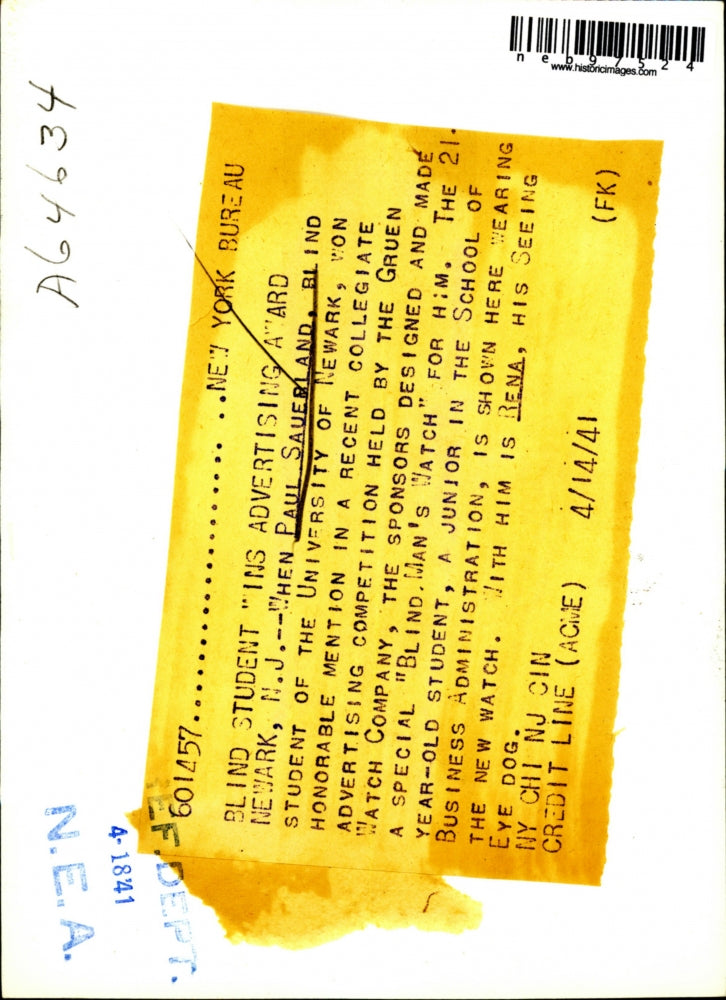 neb97524
www.historicimages.com
A64634
601457..............................NEW YORK BUREAU
BLIND STUDENT WINS ADVERTISING AWARD
NEWARK, N.J.--WHEN PAUL SAUERLAND, BLIND
STUDENT OF THE UNIVERSITY OF NEWARK, WON
HONORABLE MENTION IN A RECENT COLLEGIATE
ADVERTISING COMPETITION HELD BY THE GRUEN
WATCH COMPANY, THE SPONSORS DESIGNED AND MADE
A SPECIAL "BLIND MAN'S WATCH" FOR HIM. THE 21-
YEAR-OLD STUDENT, A JUNIOR IN THE SCHOOL OF
BUSINESS ADMINISTRATION, IS SHOWN HERE WEARING
THE NEW WATCH. WITH HIM IS RENA, HIS SEEING
EYE DOG.
NY CHI NJ CIN
CREDIT LINE (ACME) 4/14/41 (FK)
EF. DEPT.
4-1841
N.E.A.